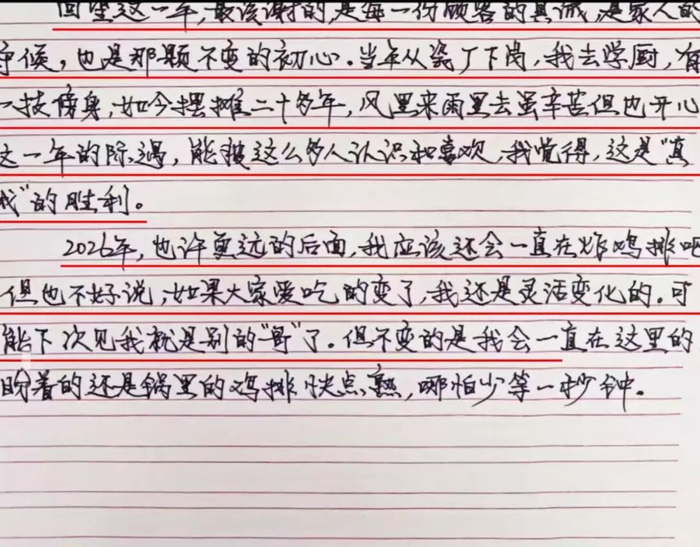 回望这一年,最该谢的,是每一份顾客的真诚,是家人的
守候,也是那颗不变的初心。当年从瓷厂下岗,我去学厨,有
一技傍身,如今摆摊二十多年,风里来雨里去虽辛苦但也开心
这一年的际遇,能被这么多人认识和喜欢,我觉得,这是“真
诚”的胜利。
2026年,也许更远的后面,我应该还会一直在炸鸡排吧
但也不好说,如果大家爱吃的变了,我还是灵活变化的。可
能下次见我就是别的“哥”了。但不变的是我会一直在这里的
盼着的还是锅里的鸡排快点熟,哪怕少等一秒钟。